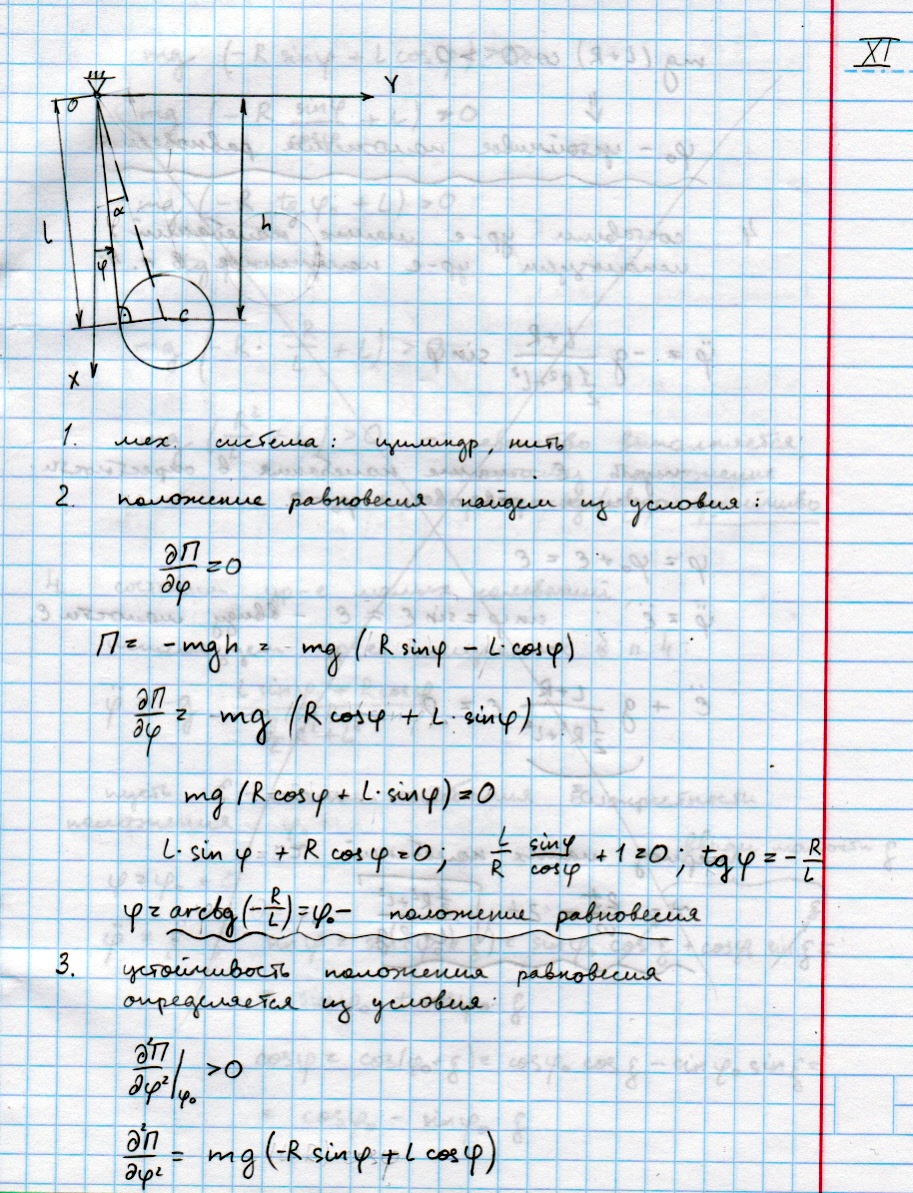 XI
O
Y
α
l
h
φ
C
X
1. мех. система: цилиндр, нить
2. положение равновесия найдем из условия:
∂П/∂φ = 0
П = -mgh = mg (R sinφ - L·cosφ)
∂П/∂φ = mg (R cosφ + L·sinφ)
mg (R cosφ + L·sinφ) = 0
L·sin φ + R cosφ = 0; L/R sinφ/cosφ + 1 = 0; tgφ = -R/L
φ = arctg(-R/L) = φ₀ - положение равновесия
3. устойчивость положения равновесия
определяется из условия:
∂²П/∂φ²|φ₀ > 0
∂²П/∂φ² = mg (-R sinφ + L cosφ)